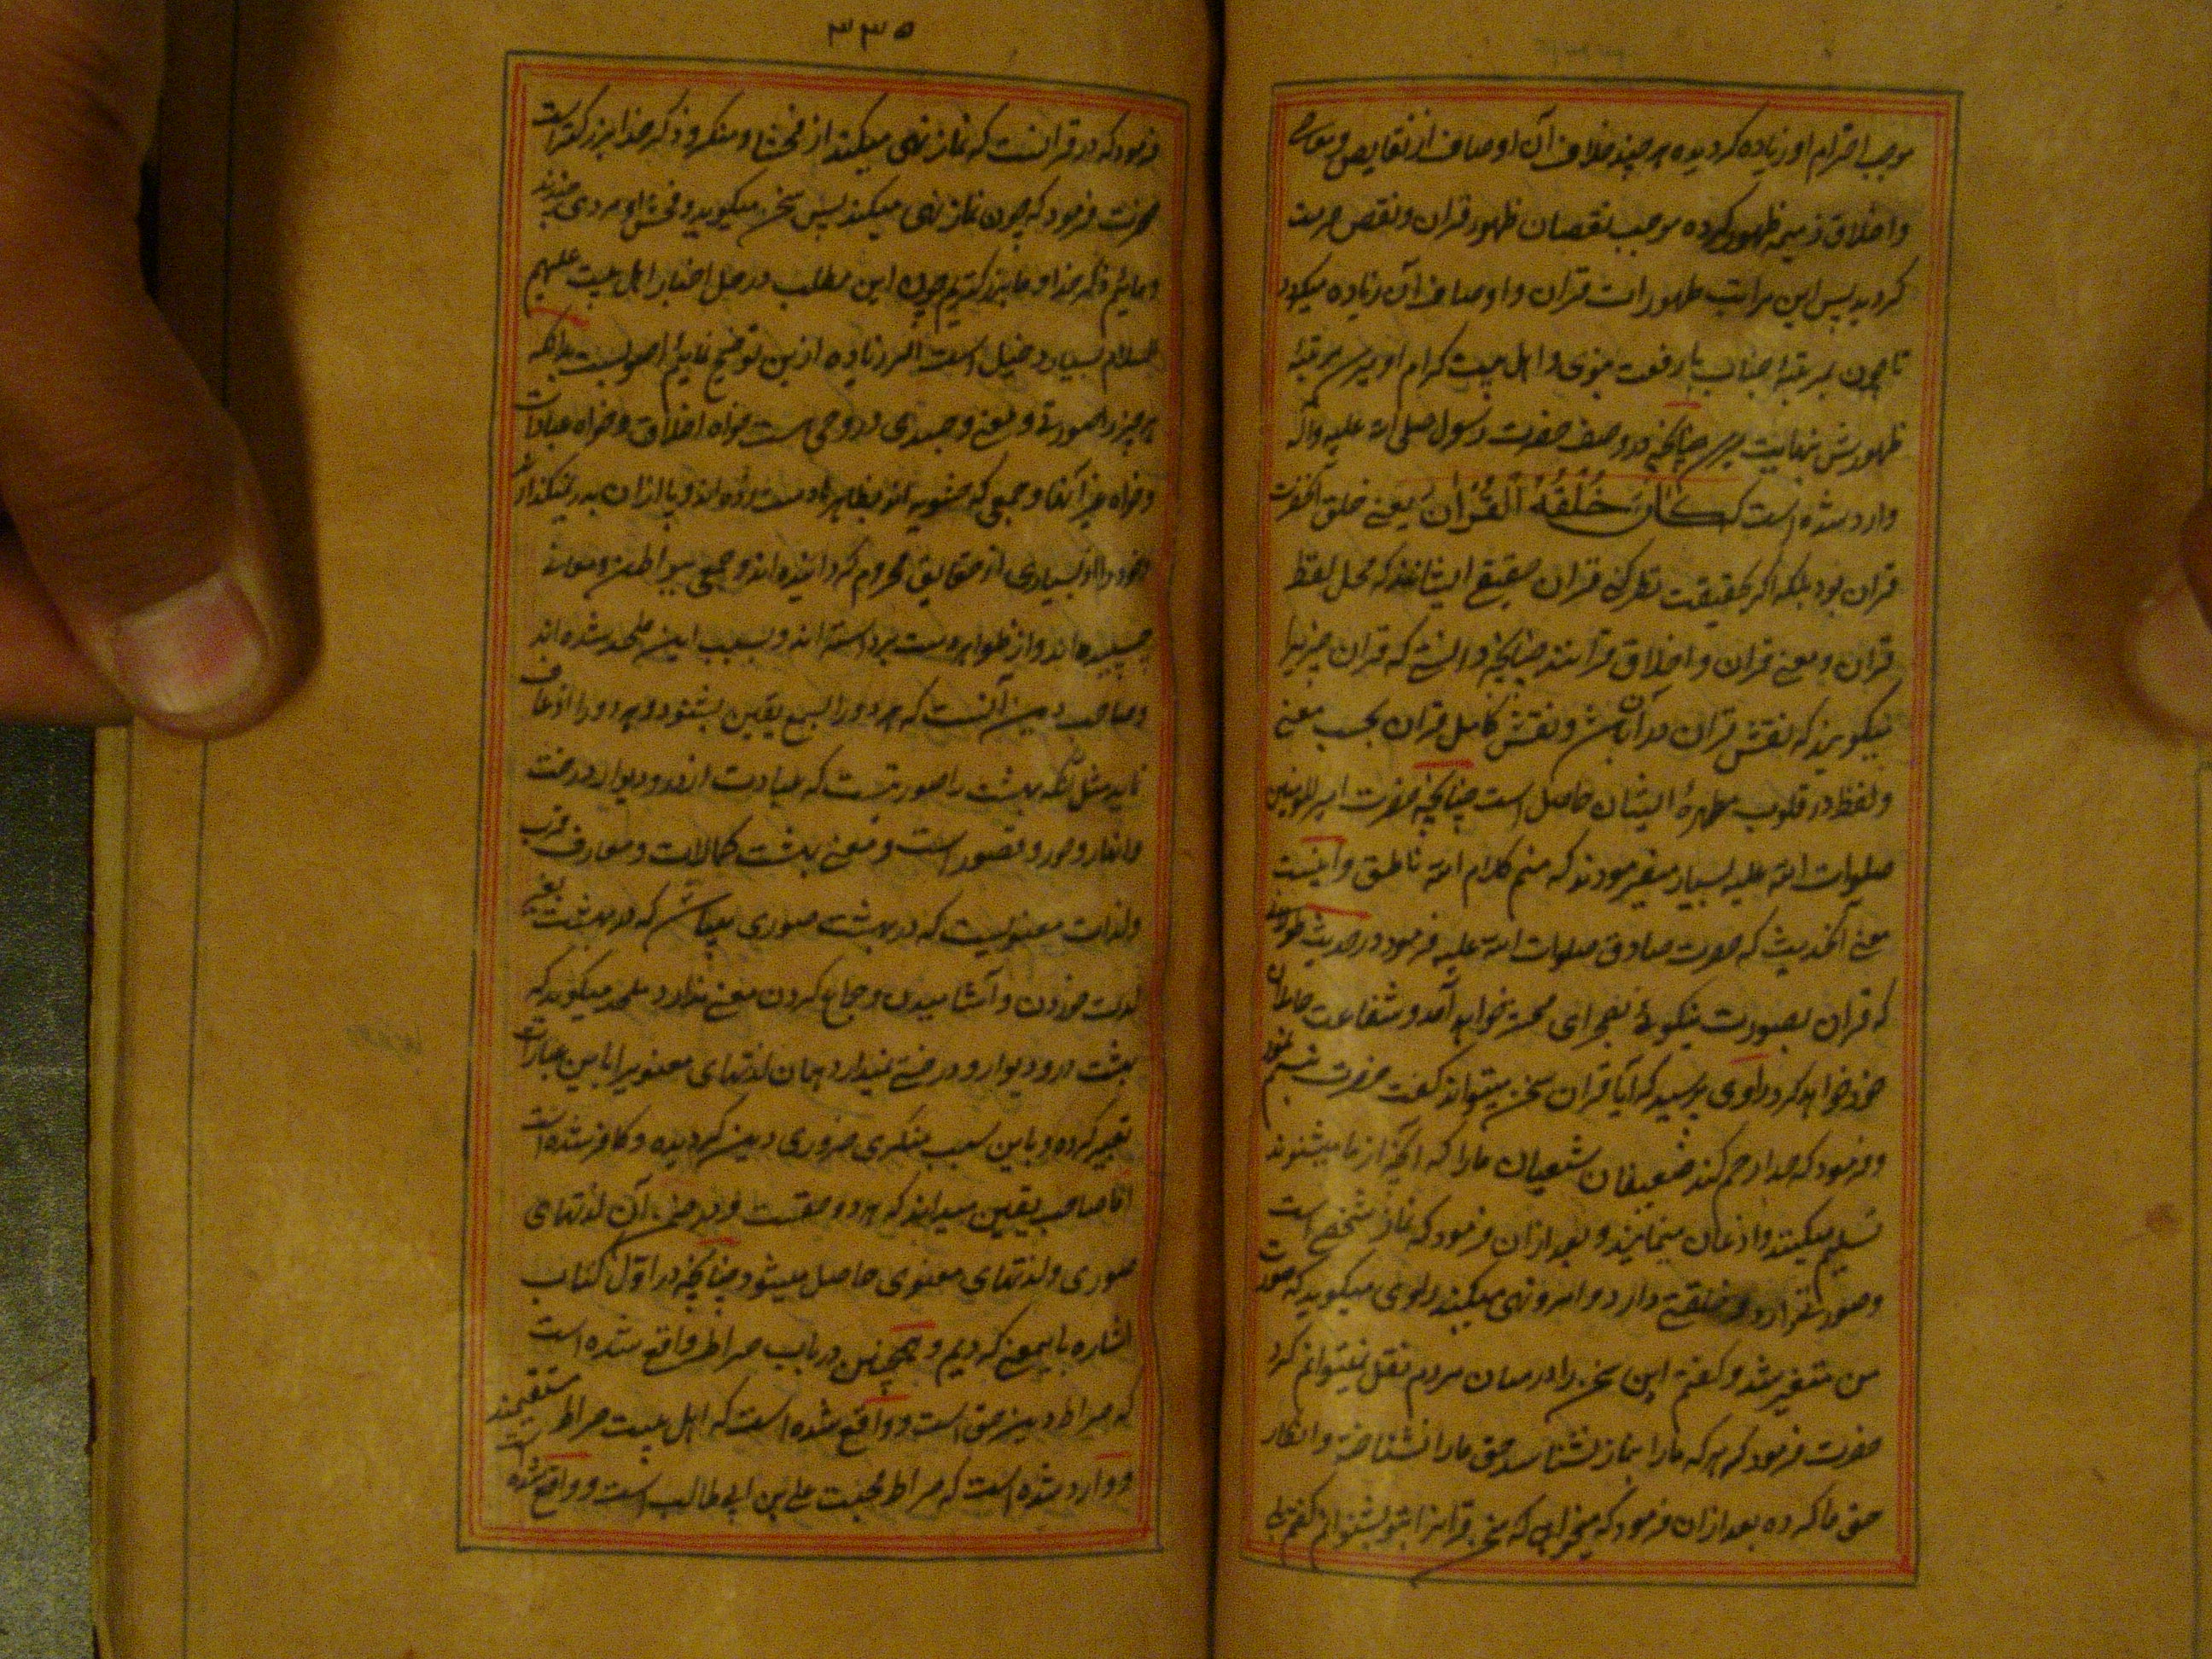 موجب احترام او زیاده کردیده هر چند خلاف آن اوصاف از نقایص و معاصی
و اخلاق ذمیمه ظهور کرده موجب نقصان ظهور قران و نقص حرمت
کردید پس این مراتب ظهورات قران و اوصاف آن زیاده میکردد
تا چون بمرتبه جناب با رفعت نبوی و اهل بیت کرام او میرسد مرتبه
ظهورش نهایت میرسد چنانچه در وصف حضرت رسول صلی الله علیه وآله
وارد شده است که کَانَ خُلْقُهُ الْقُرْانَ یعنی خلق آنحضرت
قران بود بلکه اکر بحقیقت نظر کنی قران حقیقی ایشانند که محل لفظ
قران و معنی قران و اخلاق قرانند چنانچه دانستی که قران چیزیرا
میکویند که نقش قران در آن باشد و نقش کامل قران بحسب معنی
و لفظ در قلوب مطهرهٔ ایشان حاصل است چنانچه حضرت امیرالمومنین
صلوات الله علیه بسیار میفرمودند که منم کلام الله ناطق و اینست
معنی آنحدیث که حضرت صادق صلوات الله علیه فرمود در حدیث طولانی
که قران بصورت نیکوئی بصحرای محشر خواهد آمد و شفاعت حاملان
خود خواهد کرد راوی پرسید که آیا قران سخن میتواند کفت حضرت تبسم نمود
و فرمود که خدا رحم کند ضعیفان شیعیان ما را که آنچه از ما میشنوند
تسلیم میکنند و اذعان مینمایند و بعد از ان فرمود که نماز شخصی است
و صورتی دارد و خلقتی دارد و امر و نهی میکند راوی میکوید که صورت
من متغیر شد و کفتم این سخن را در میان مردم نقل نمیتوانم کرد
حضرت فرمود که هر که ما را بنماز نشناسد حق ما را نشناخته و انکار
حق ما کرده بعد از ان فرمود که میخواهی که سخن قرانرا بتو بشنوانم کفتم بلی
۳۳۵
فرمود که در قرانست که نماز نهی میکند از فحشا و منکر و ذکر خدا بزرکتر است
حضرت فرمود که چون نماز نهی میکند پس سخن میکوید و فحشا و مردی چندند
و مائیم ذکر خدا و ما بزرکتریم چون این مطلب در حل اخبار اهل بیت علیهم
السلام بسیار دخیل است اکر زیاده ازین توضیح نمائیم اصوبست بدانکه
هر چیز را صورتی و معنی و جسدی و روحی هست خواه اخلاق و خواه عبادات
و خواه غیر آنها و جمعی که حشویه اند بظاهرها دست زده اند و پا از ان بدر نمیکذارند
خود را از بسیاری از حقایق محروم کردانیده اند و جمعی ببواطن و معانی
چسپیده اند و از ظواهر دست برداشته اند و بسبب این ملحد شده اند
و صاحب دین آنست که هر دو را بسمع یقین بشنود و هر دو را اذعان
نماید مثل آنکه بهشت را صورتیست که عبارت از در و دیوار و درخت
و انهار و حور و قصور است و معنی بهشت کمالات و معارف و قرب
و لذات معنویست که در بهشت صوری میباشد که در بهشت بغیر
لذت خوردن و آشامیدن و جماع کردن معنی ندارد ملحد میکوید که
بهشت در و دیوار و درختی نمیدارد همان لذتهای معنویرا باین عبارات
تعبیر کرده و باین سبب منکر ضروری دین کردیده و کافر شده است
اما صاحب یقین میداند که هر دو حقست و در ضمن آن لذتهای
صوری ولذتهای معنوی حاصل میشود چنانچه در اول کتاب
اشاره باینمعنی کردیم و همچنین در باب صراط واقع شده است
که صراط دین حق است و واقع شده است که اهل بیت صراط مستقیمند
و وارد شده است که صراط محبت علی بن ابی طالب است و واقع شده